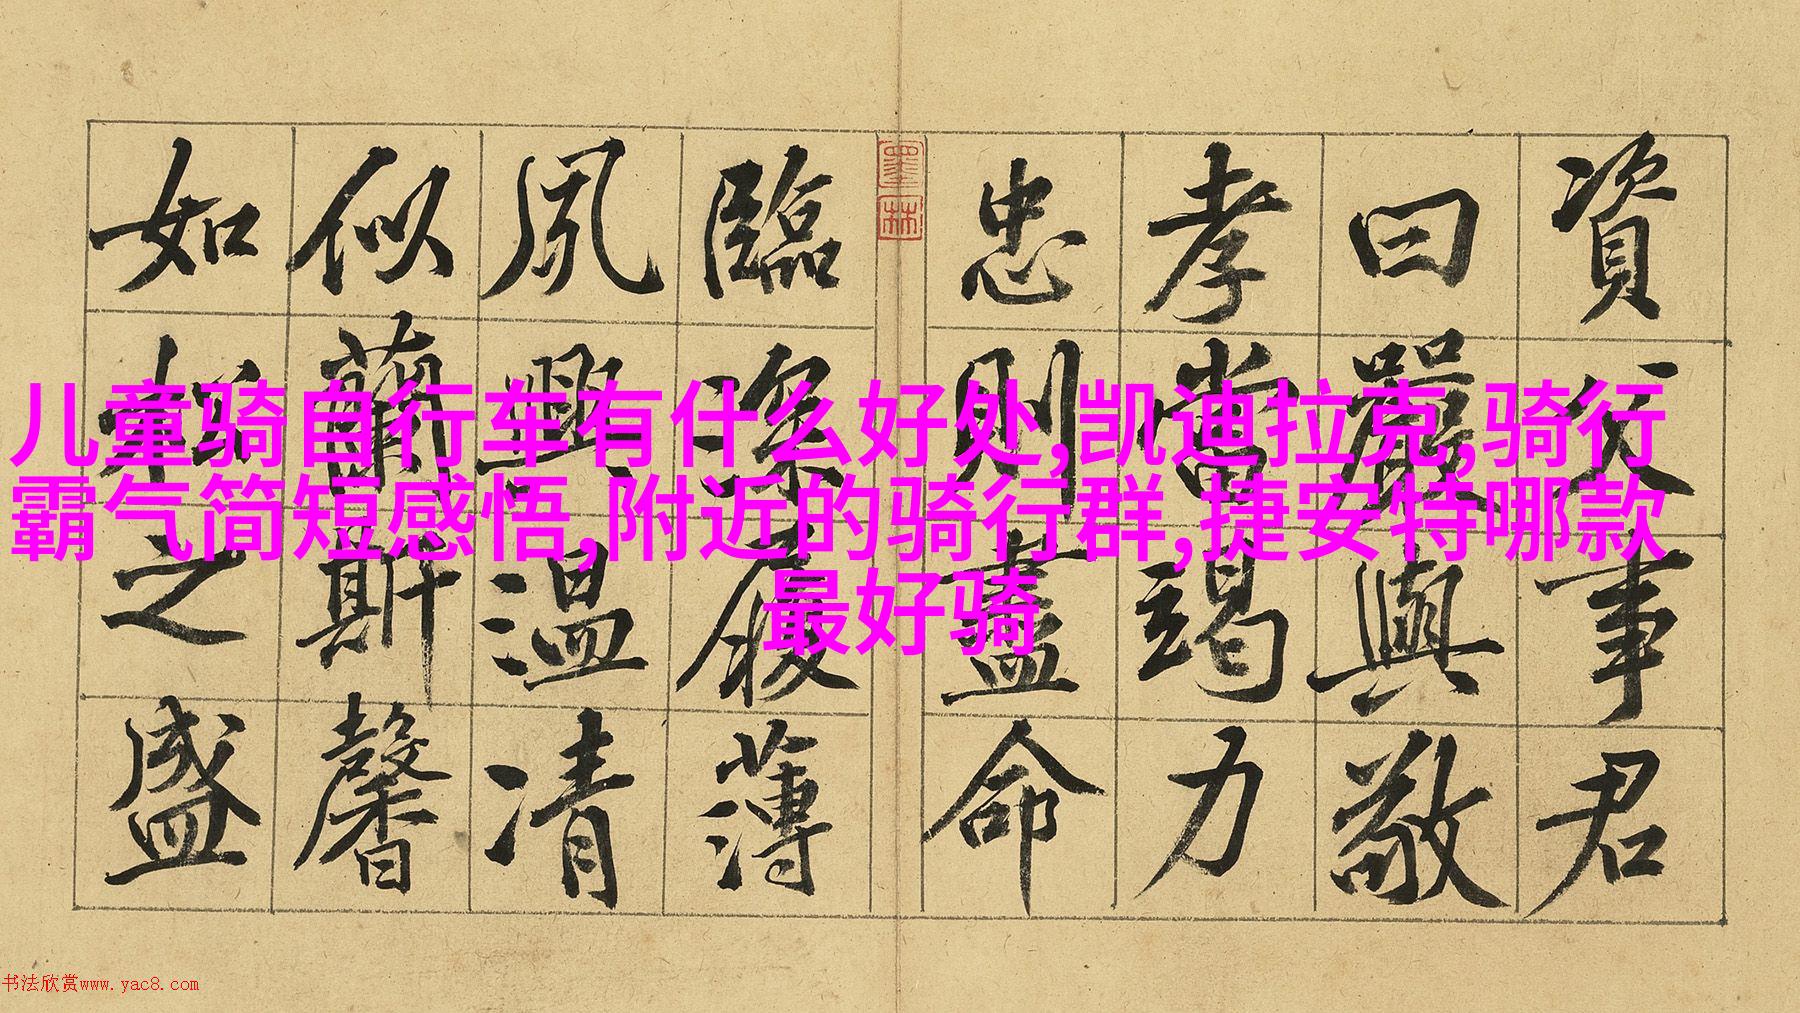 資父事君
曰嚴與敬
孝當竭力
忠則盡命
墨林
臨深履薄
夙興溫凊
似蘭斯馨
如松之盛
儿童骑自行车有什么好处,凯迪拉克,骑行
霸气简短感悟,附近的骑行群,捷安特哪款
最好骑
书法欣赏www.yac8.com